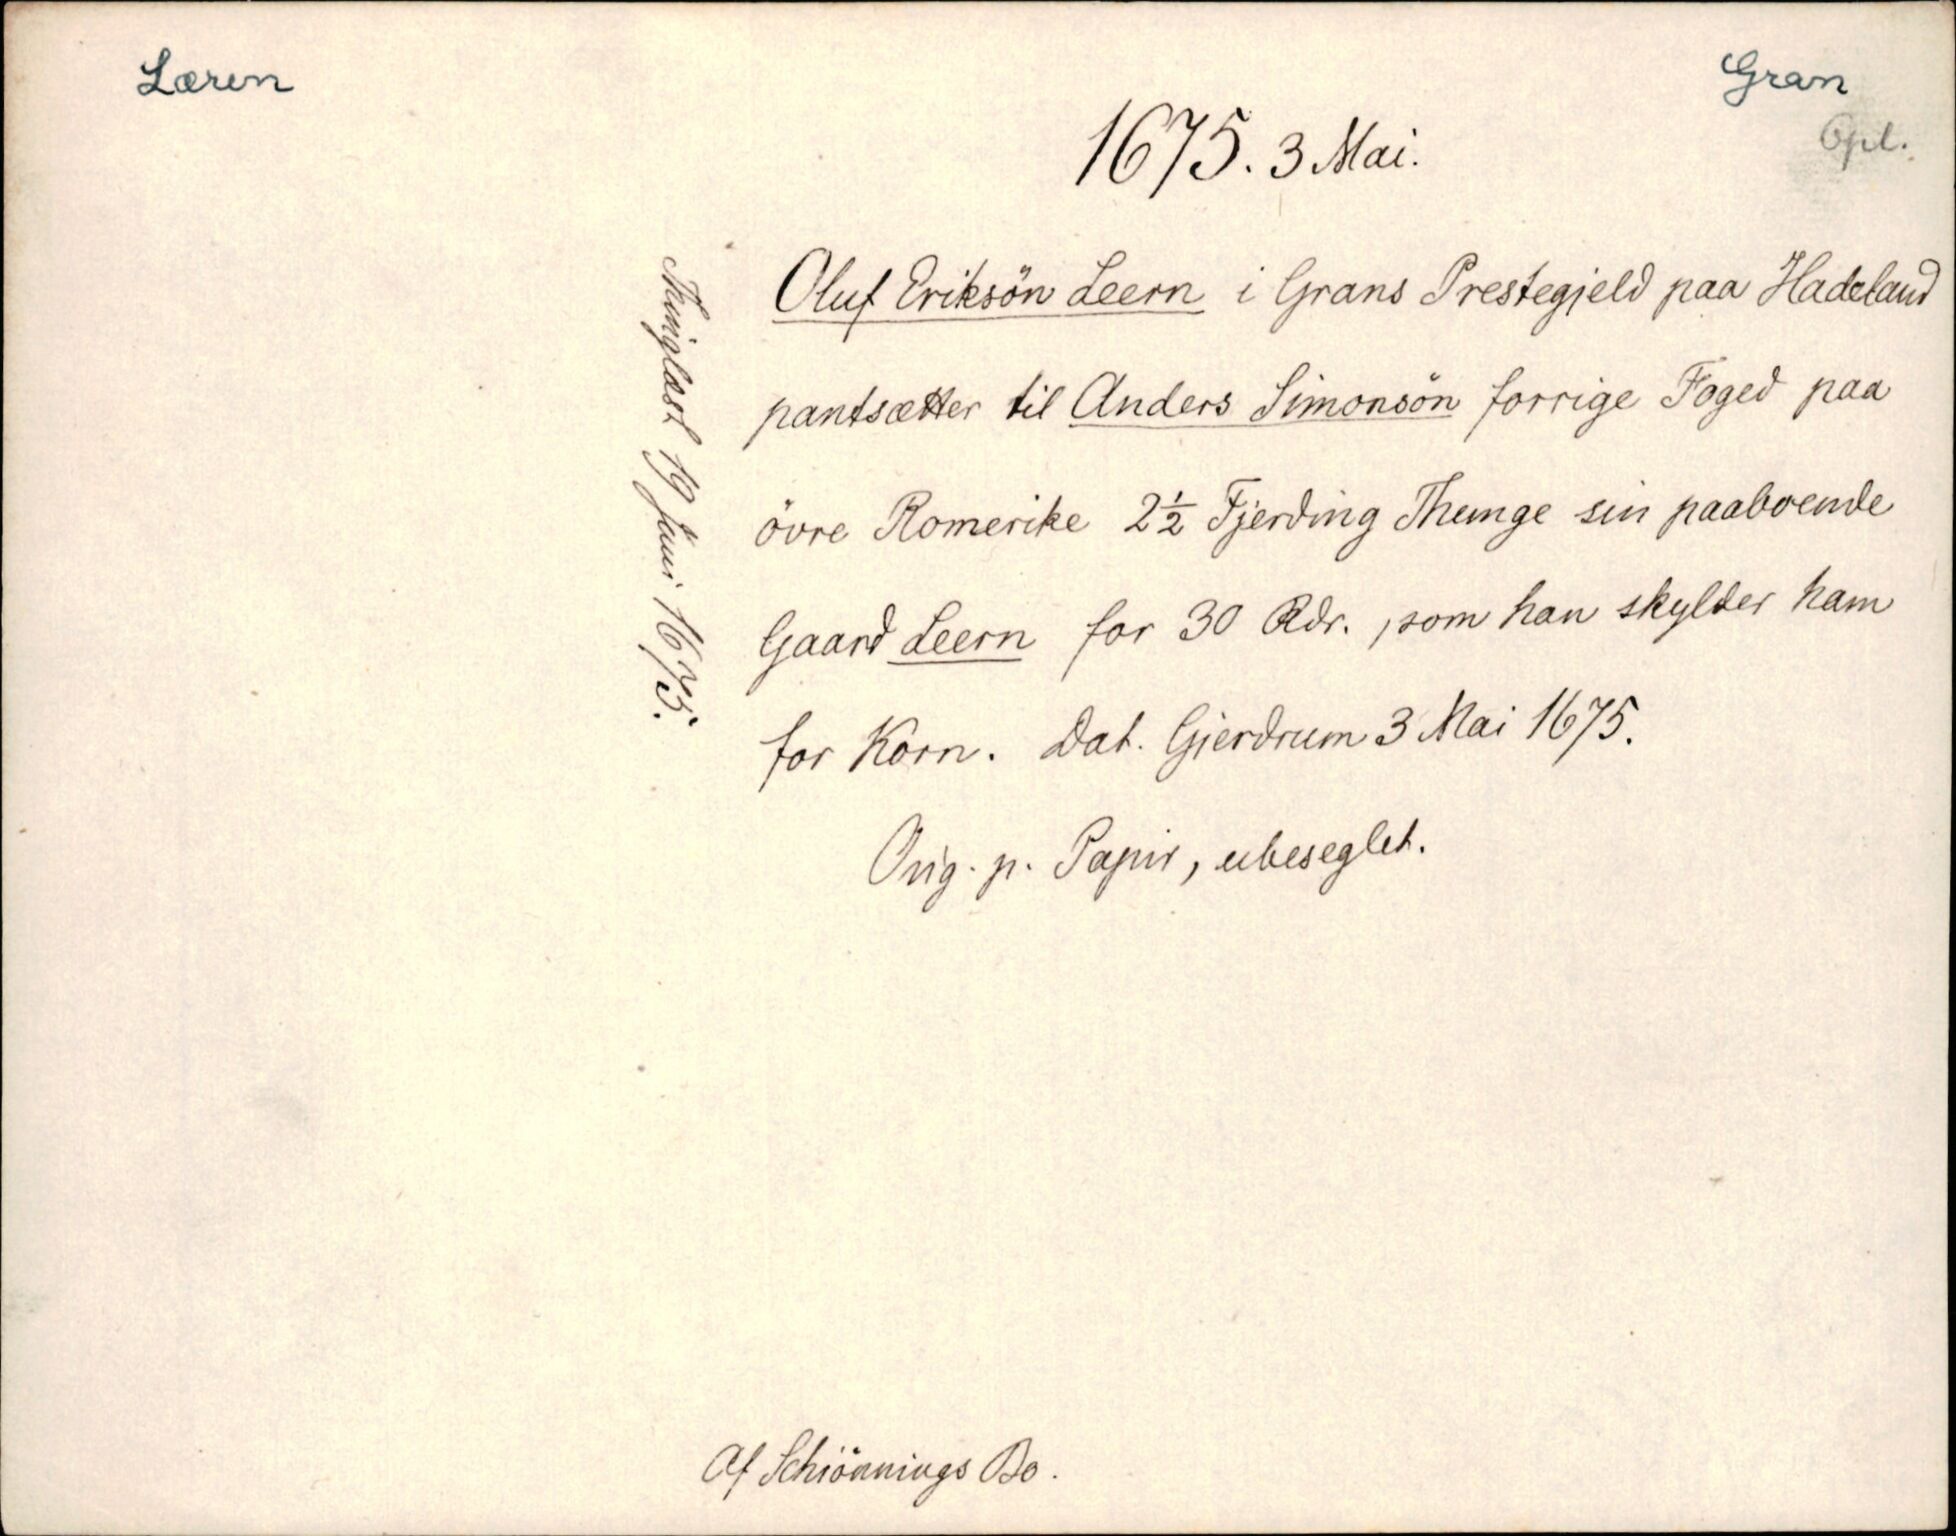 Læren
Gran
Opl.
1675. 3 Mai.
Oluf Eriksön Leern i Grans Prestegjeld paa Hadeland
pantsætter til Anders Simonsön forrige Foged paa
övre Romerike 2½ Fjerding Thunge sin paaboende
Gaard Leern for 30 Rdr., som han skylder ham
for Korn. Dat. Gjerdrum 3 Mai 1675.
Orig. p. Papir, ubeseglet.
Thinglæst 19 Juni 1675.
Af Schiönnings Bo.